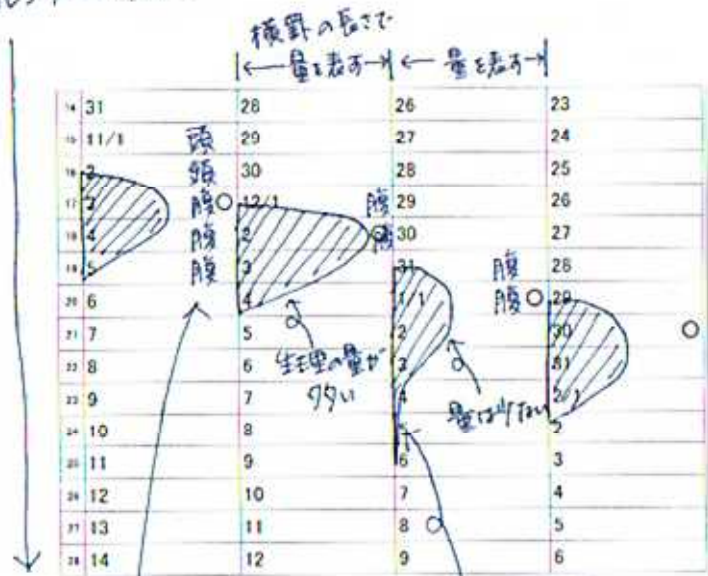 横罫の長さで
量を表す 量を表す
14 31 28 26 23
15 11/1 頭 29 27 24
16 2 頭 30 28 25
17 3 腹 12/1 腹 29 26
18 4 腹 2 腹 30 27
19 5 腹 3 31 腹 28
20 6 4 1/1 腹 29
21 7 5 2 30
22 8 6 3 31
23 9 7 4 2/1
24 10 8 5 2
25 11 9 6 3
26 12 10 7 4
27 13 11 8 5
28 14 12 9 6
生理の量が
多い
量は少ない